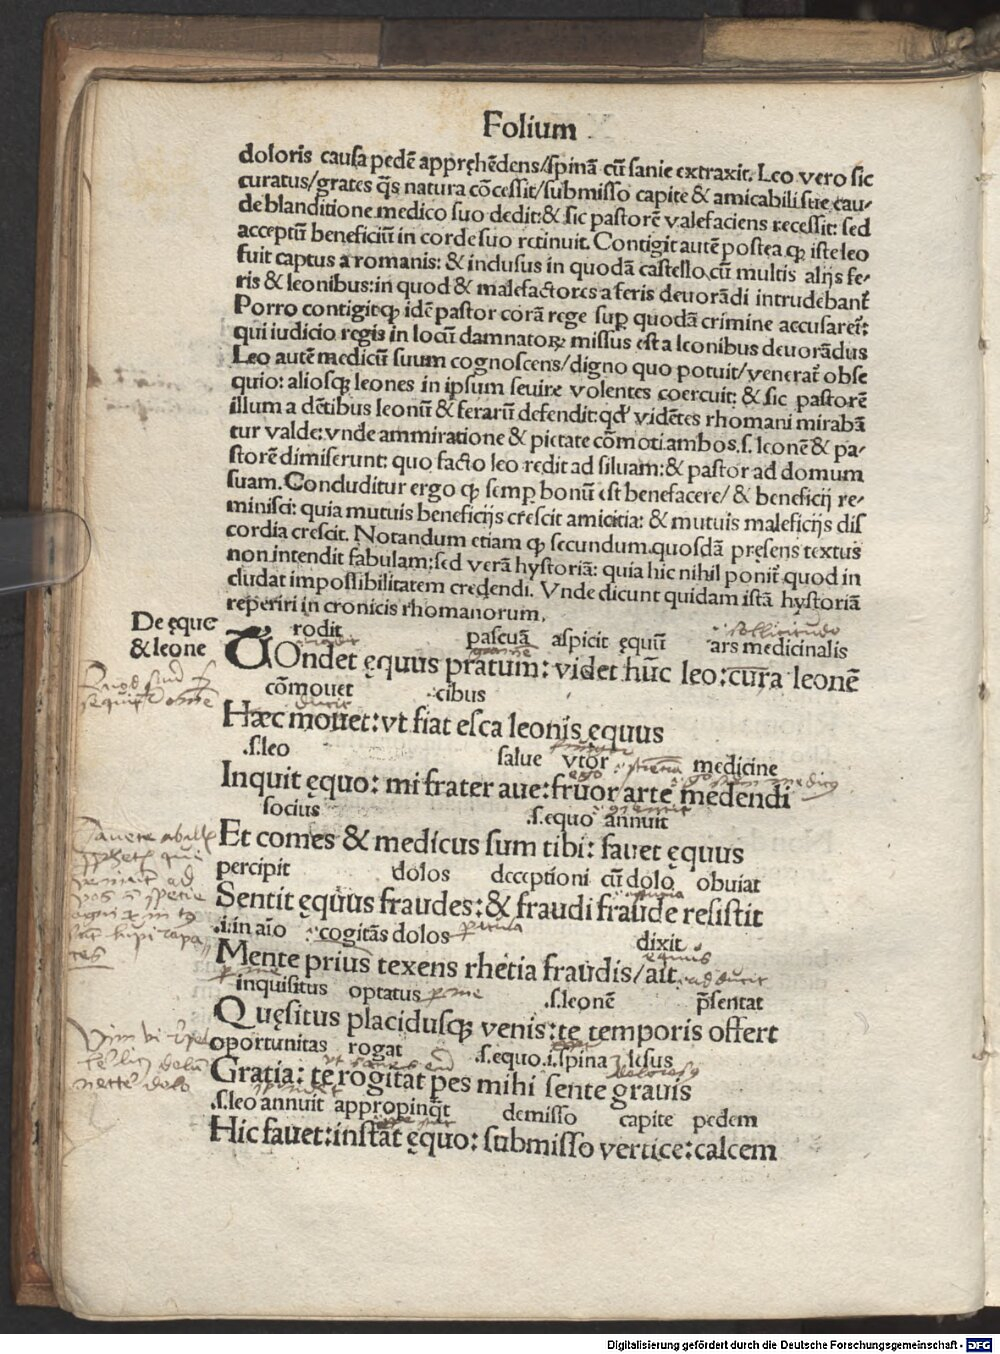 Folium
doloris causa pedē appręhēdens/spinā cū sanie extraxit. Leo vero sic
curatus/grates q̄s natura cōcessit/submisso capite & amicabili sue cau⸗
de blanditione medico suo dedit: & sic pastorē valefaciens recessit: sed
acceptū beneficiū in corde suo retinuit. Contigit autē postea ꝙ iste leo
fuit captus a romanis: & inclusus in quodā castello cū multis alijs fe⸗
ris & leonibus: in quod & malefactores a feris deuorādi intrudebant᷑
Porro contigit ꝙ idē pastor corā rege sup quodā crimine accusaret᷑:
qui iudicio regis in locū damnatoꝝ missus est a leonibus deuorādus
Leo autē medicū suum cognoscens/digno quo potuit/venerat᷑ obse
quio: aliosqꝫ leones in ipsum seuire volentes coercuit: & sic pastorē
illum a dētibus leonū & ferarū defendit: qd' vidētes rhomani mirabā
tur valde: vnde ammiratione & pietate cōmoti ambos .s. leonē & pa⸗
storē dimiserunt: quo facto leo redit ad siluam: & pastor ad domum
suam. Concluditur ergo ꝙ semp bonū est benefacere/ & beneficij re⸗
minisci: quia mutuis beneficijs crescit amicitia: & mutuis maleficijs dis
cordia crescit. Notandum etiam ꝙ secundum quosdā pręsens textus
non intendit fabulam: sed verā hystoriā: quia hic nihil ponit᷑ quod in
cludat impossibilitatem credendi. Vnde dicunt quidam istā hystoriā
reperiri in cronicis rhomanorum.
De ęque
& leone
rodit pascuā aspicit ęquū ars medicinalis
TOndet ęquus pratum: videt hūc leo: cura leonē
cōmouet cibus
Hæc mouet: vt fiat esca leonis ęquus
.s. leo salue vtor medicine
Inquit ęquo: mi frater aue: fruor arte medendi
socius .s. equo annuit
Et comes & medicus sum tibi: fauet ęquus
percipit dolos deceptioni cū dolo obuiat
Sentit ęquus fraudes: & fraudi fraude resistit
.i. in aīo cogitās dolos dixit
Mente prius texens rhetia fraudis/ait
inquisitus optatus .s. leonē p̄sentat
Quęsitus placidusqꝫ venis: te temporis offert
oportunitas rogat .s. equo .i. spina lęsus
Gratia: te rogitat pes mihi sente grauis
.s. leo annuit appropinq̄t demisso capite pedem
Hic fauet: instat ęquo: submisso vertice: calcem
Digitalisierung gefördert durch die Deutsche Forschungsgemeinschaft - DFG